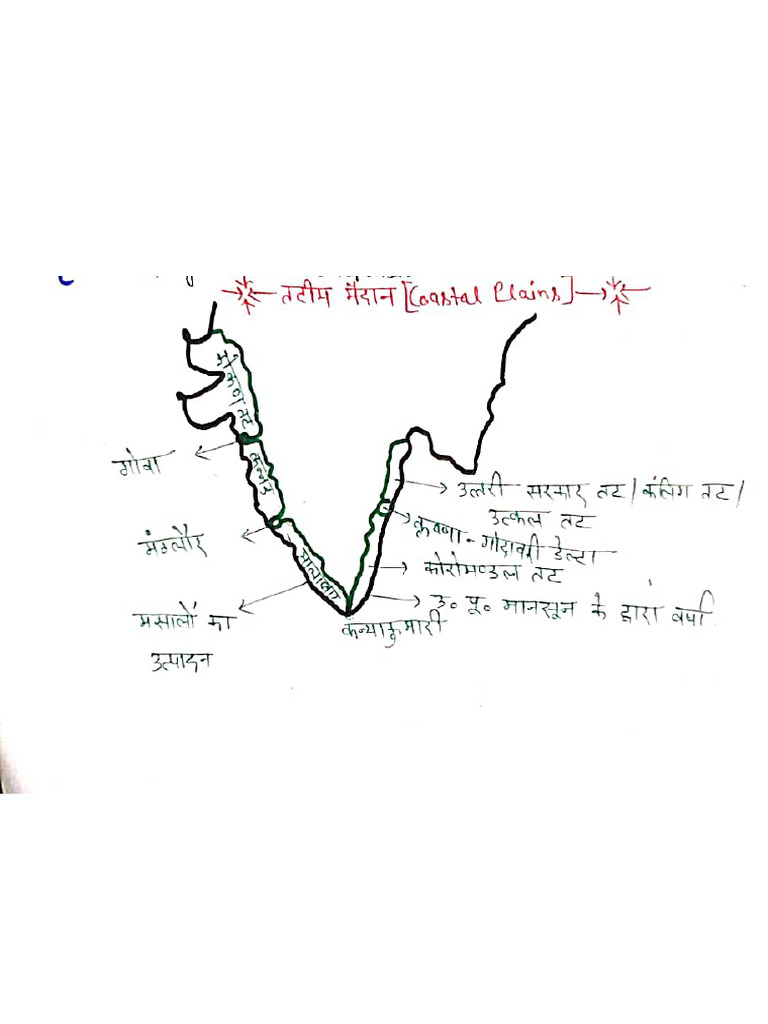 तटीय मैदान [Coastal Plains]
गोवा
मंगलौर
मसालों का
उत्पादन
कन्याकुमारी
उत्तरी सरकार तट / कलिंग तट /
उत्कल तट
कृष्णा - गोदावरी डेल्टा
कोरोमण्डल तट
उ० पू० मानसून के द्वारा वर्षा